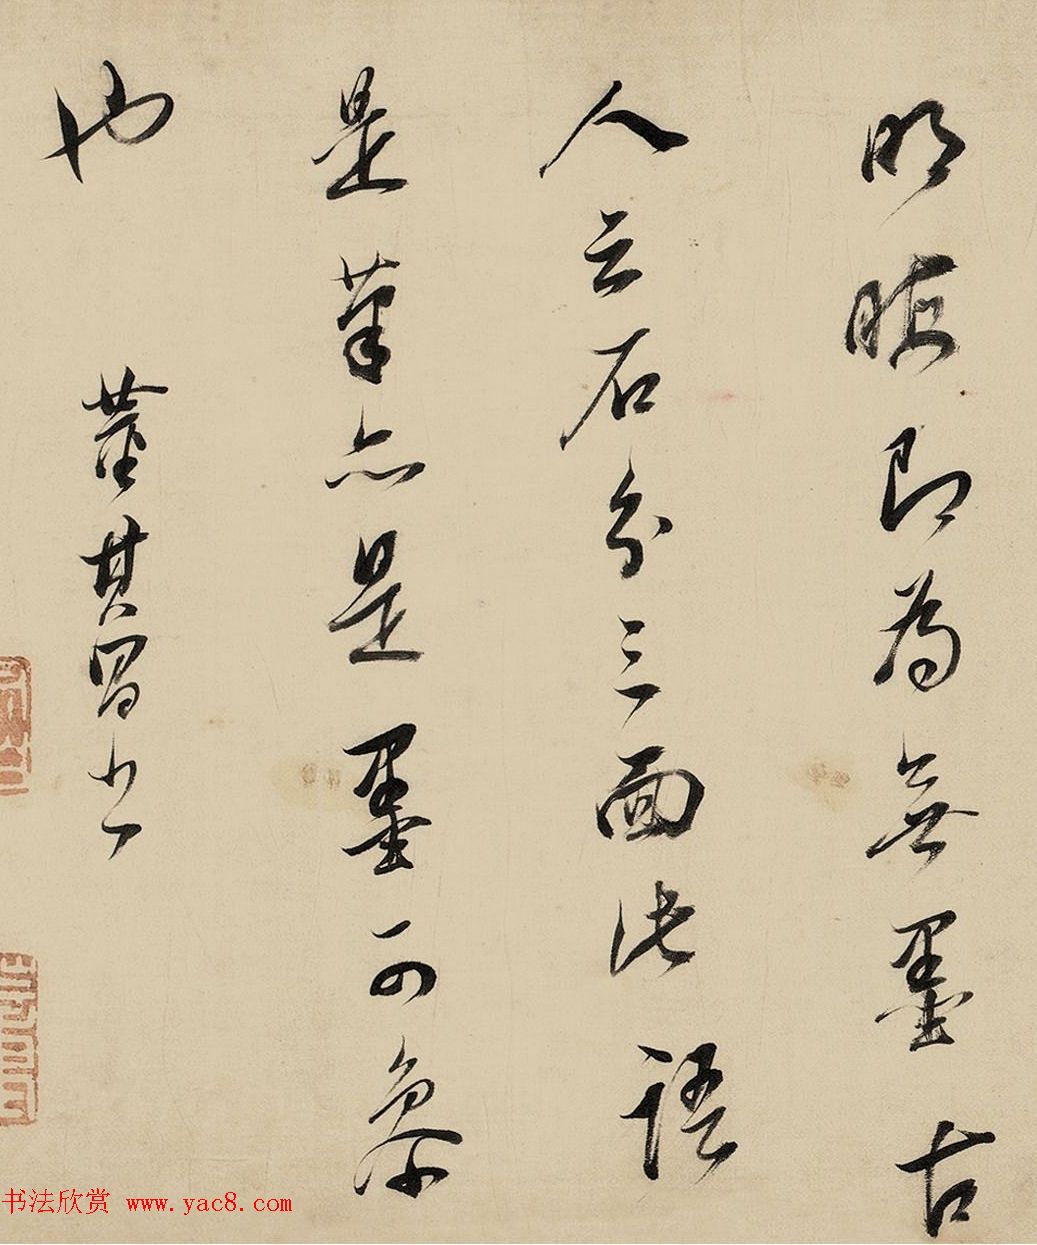 明晦即為無墨古
人云石分三面此語
是筆亦是墨可參
也 董其昌書
书法欣赏 www.yac8.com